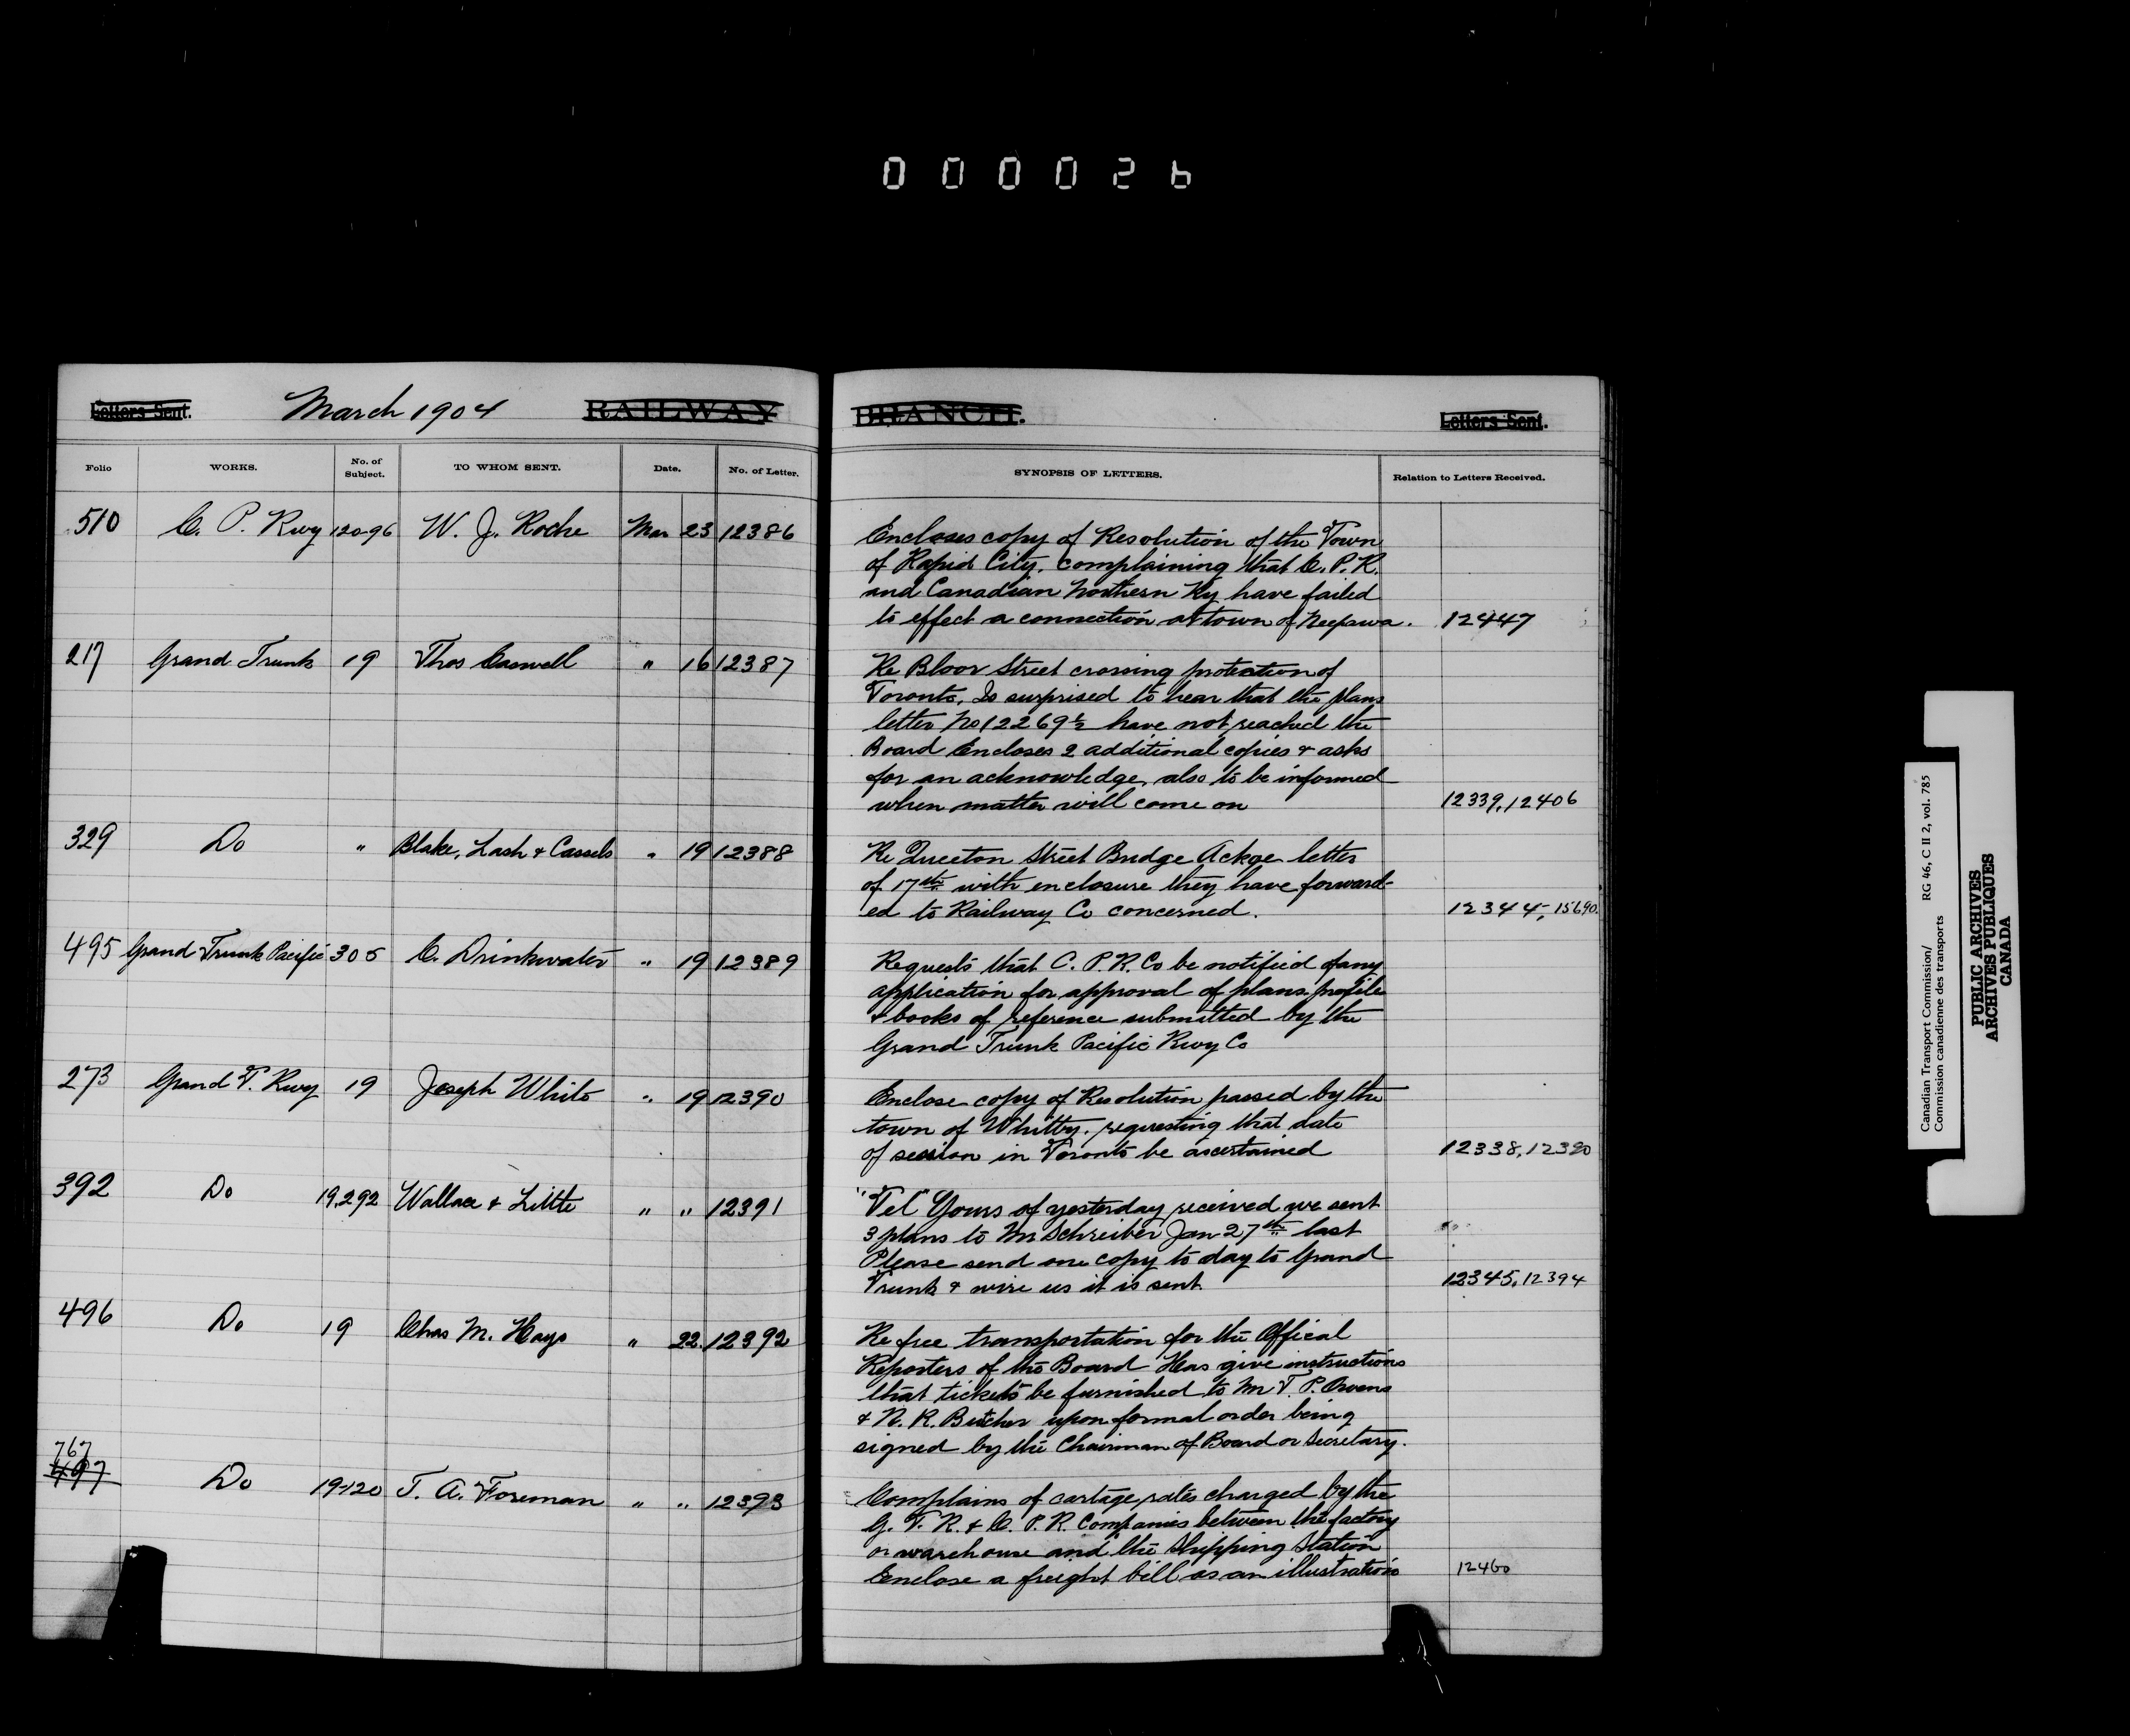 000026
Letters Sent. March 1904 RAILWAY BRANCH. Letters Sent.
Folio WORKS. No. of Subject. TO WHOM SENT. Date. No. of Letter. SYNOPSIS OF LETTERS. Relation to Letters Received.
510 C. P. Rwy 120-96 W. J. Roche Mar 23 12386
Encloses copy of Resolution of the Town
of Rapid City. complaining that C. P. R.
and Canadian Northern Ry have failed
to effect a connection at town of Neepawa. 12447
217 Grand Trunk 19 Thos Caswell " 16 12387
Re Bloor Street crossing protection of
Toronto, Is surprised to hear that the plans
letter No 12269½ have not reached the
Board Encloses 2 additional copies & asks
for an acknowledge, also to be informed
when matter will come on 12339, 12406
329 Do " Blake, Lash & Cassels " 19 12388
Re Street Bridge Ackge letter
of 17th with enclosure they have forward-
ed to Railway Co concerned. 12344, 15690.
495 Grand Trunk Pacific 305 C. Drinkwater " 19 12389
Requests that C. P. R. Co be notified of any
application for approval of plans. profile
& books of reference submitted by the
Grand Trunk Pacific Rwy Co
273 Grand T. Rwy 19 Joseph White " 19 12390
Enclose copy of Resolution passed by the
town of Whitby. requesting that date
of session in Toronto be ascertained 12338, 12390
392 Do 19,292 Wallace & Little " " 12391
"Tel" Yours of yesterday received we sent
3 plans to Mr Schreiber Jan 27th last
Please send one copy to day to Grand
Trunk & wire us it is sent. 12345, 12394
496 Do 19 Chas M. Hays " 22. 12392
Re free transportation for the Offical
Reporters of the Board Has give instructions
that tickets be furnished to Mr T. P. Owens
& N. R. Butcher upon formal order being
signed by the Chairman of Board or Secretary.
767
497 Do 19-120 T. A. Foreman " " 12393
Complains of cartage rates charged by the
G. T. R. & C. P. R. Companies between the factory
or warehouse and the Shipping Station
Enclose a freight bill as an illustration 12460
Canadian Transport Commission/ RG 46, C II 2, vol. 785
Commission canadienne des transports
PUBLIC ARCHIVES
ARCHIVES PUBLIQUES
CANADA